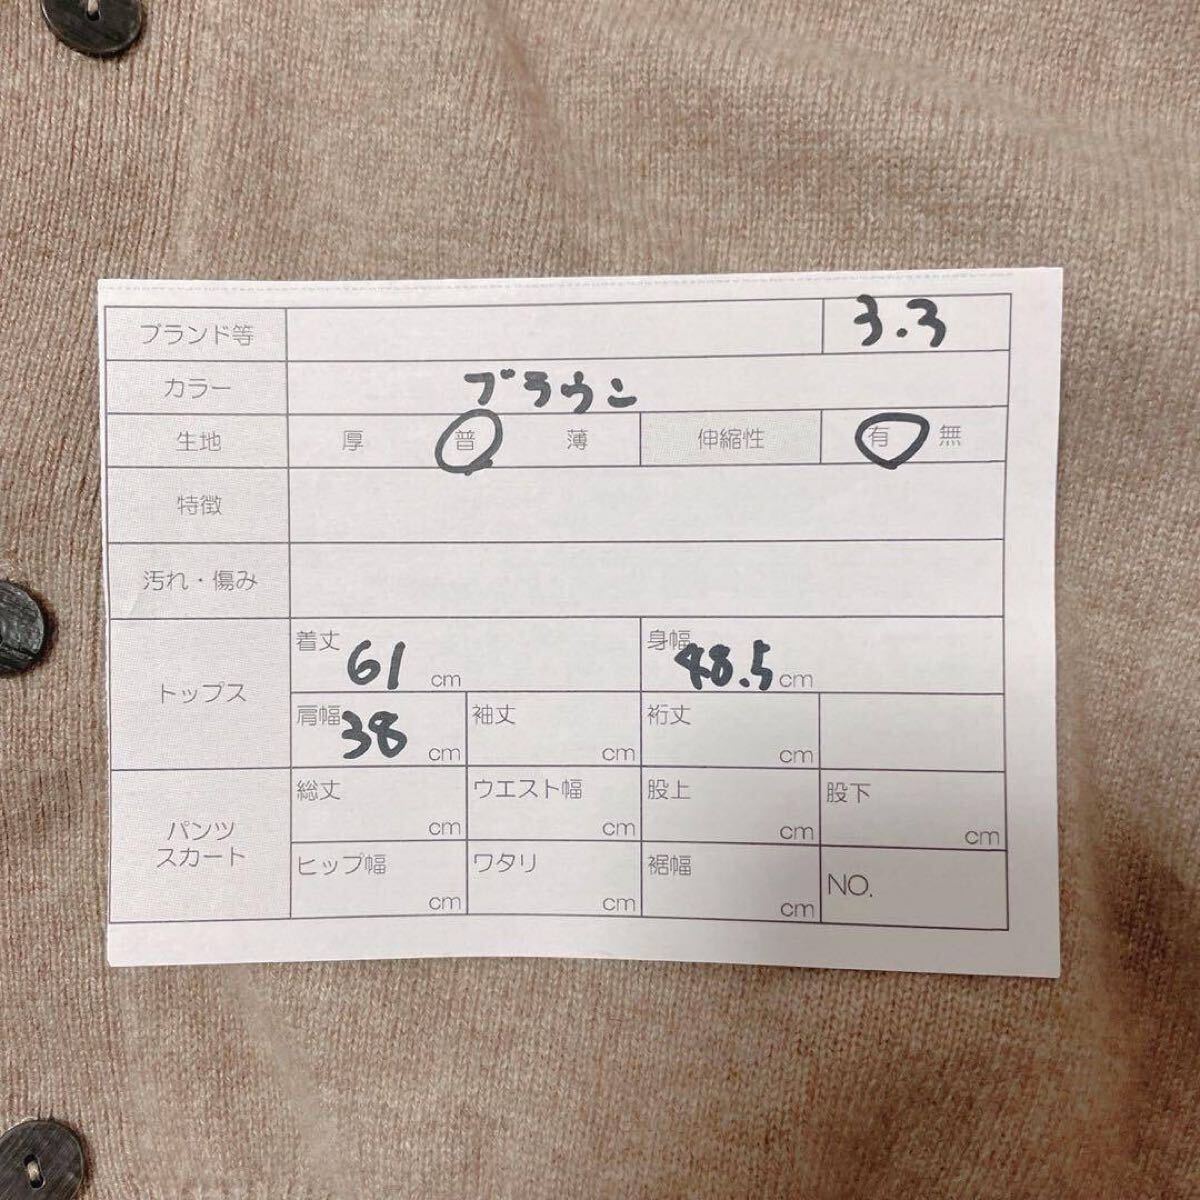 ブランド等 3.3
カラー ブラウン
生地 厚 普 薄 伸縮性 有 無
特徴
汚れ・傷み
トップス
着丈 61 cm 身幅 48.5 cm
肩幅 38 cm 袖丈 cm 裄丈 cm
パンツ
スカート
総丈 cm ウエスト幅 cm 股上 cm 股下 cm
ヒップ幅 cm ワタリ cm 裾幅 cm NO.